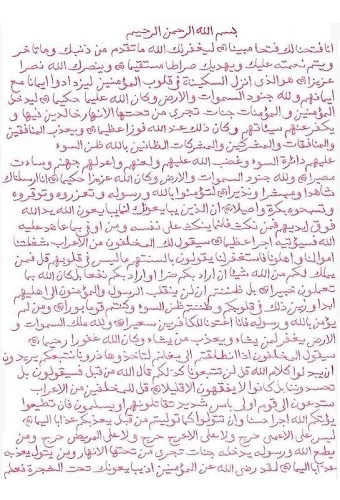 بسم الله الرحمن الرحيم
انا فتحنا لك فتحا مبينا ليغفر لك الله ما تقدم من ذنبك وما تاخر
ويتم نعمته عليك ويهديك صراطا مستقيما وينصرك الله نصرا
عزيزا هو الذي انزل السكينة في قلوب المؤمنين ليزدادوا ايمانا مع
ايمانهم ولله جنود السموات والارض وكان الله عليما حكيما ليدخل
المؤمنين و المؤمنات جنات تجري من تحتها الانهار خالدين فيها و
يكفر عنهم سيئاتهم وكان ذلك عند الله فوزا عظيما ويعذب المنافقين
والمنافقات والمشركين و المشركات الظانين بالله ظن السوء
عليهم دائرة السوء وغضب الله عليهم ولعنهم واعد لهم جهنم وساءت
مصيرا ولله جنود السموات و الارض وكان الله عزيزا حكيما انا ارسلناك
شاهدا ومبشرا ونذيرا لتؤمنوا بالله و رسوله وتعزروه وتوقروه
وتسبحوه بكرة واصيلا ان الذين يبايعونك انما يبايعون الله يد الله
فوق ايديهم فمن نكث فانما ينكث على نفسه ومن اوفى بما عاهد عليه
الله فسيؤتيه اجرا عظيما سيقول لك المخلفون من الاعراب شغلتنا
اموالنا و اهلونا فاستغفر لنا يقولون بالسنتهم ما ليس في قلوبهم قل فمن
يملك لكم من الله شيئا ان اراد بكم ضرا او اراد بكم نفعا بل كان الله بما
تعملون خبيرا بل ظننتم ان لن ينقلب الرسول والمؤمنون الى اهليهم
ابدا وزين ذلك في قلوبكم وظننتم ظن السوء وكنتم قوما بورا ومن لم
يؤمن بالله ورسوله فانا اعتدنا للكافرين سعيرا ولله ملك السموات و
الارض يغفر لمن يشاء ويعذب من يشاء وكان الله غفورا رحيما
سيقول المخلفون اذا انطلقتم الى مغانم لتاخذوها ذرونا نتبعكم يريدون
ان يبدلوا كلام الله قل لن تتبعونا كذلكم قال الله من قبل فسيقولون بل
تحسدوننا بل كانوا لا يفقهون الا قليلا قل للمخلفين من الاعراب
ستدعون الى قوم اولى باس شديد تقاتلونهم او يسلمون فان تطيعوا
يؤتكم الله اجرا حسنا وان تتولوا كما توليتم من قبل يعذبكم عذابا اليما
ليس على الاعمى حرج ولا على الاعرج حرج ولا على المريض حرج ومن
يطع الله ورسوله يدخله جنات تجري من تحتها الانهار ومن يتول يعذبه
عذابا اليما لقد رضي الله عن المؤمنين اذ يبايعونك تحت الشجرة فعلم